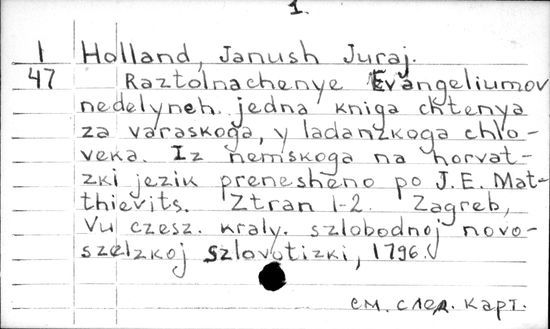 1.
I Holland, Janush Juraj.
47 Raztolnachenye Evangeliumov
nedelyneh. jedna kniga chtenya
za varaskoga, y ladanzkoga chlo-
veka. Iz nemskoga na horvat-
zki jezik prenesheno po J. E. Mat-
thievits. Ztran 1-2. Zagreb,
Vu czesz. kraly. szlobodnoj novo-
szelzkoj szlovotizki, 1796.
см. след. карт.